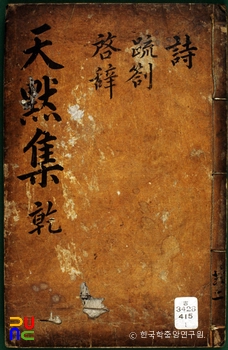 詩
疏劄
啓辭
天默集 乾
3428
415
© 한국학중앙연구원